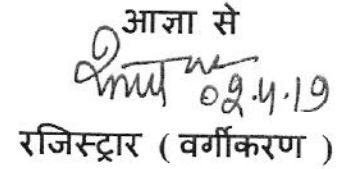 आज्ञा से
०2.4.19
रजिस्ट्रार ( वर्गीकरण )